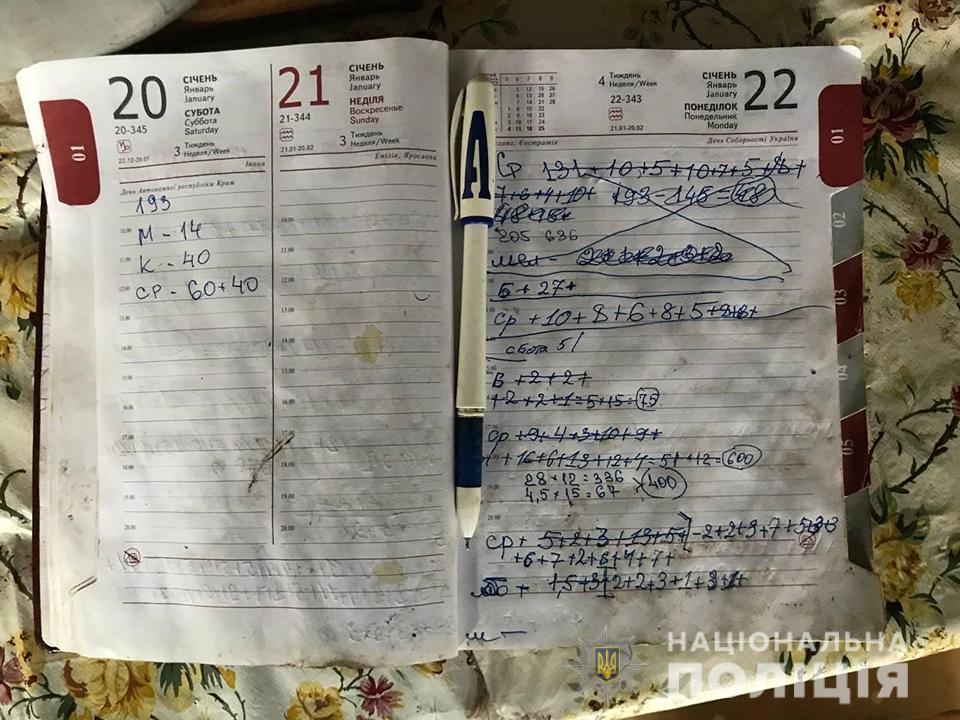 20
СІЧЕНЬ
Январь
January
СУБОТА
Суббота
Saturday
20-345
3 Тиждень
Неделя/Week
22.12-20.01
Івана
День Автономної республіки Крим
193
М - 14
К - 40
СР - 60+40
11.00
12.00
13.00
14.00
15.00
16.00
17.00
18.00
19.00
20.00
01
21
СІЧЕНЬ
Январь
January
НЕДІЛЯ
Воскресенье
Sunday
21-344
3 Тиждень
Неделя/Week
21.01-20.02
Емілія, Ярослава
10.00
11.00
12.00
13.00
14.00
15.00
16.00
17.00
18.00
19.00
20.00
A
4 Тиждень
Неделя/Week
22-343
21.01-20.02
СІЧЕНЬ
Январь
January
ПОНЕДІЛОК
Понедельник
Monday
22
День Соборності України
Ср 131+10+5+10+7+5+
7+6+4+10+ 193-145=48
205 636
мал -
Б + 27+
ср +10+8+6+8+5+8+8+
сбота 5/
В +2+2+
+2+2+1=5*15=75
ср +9+4+3+10+9+
+16+6+13+12+4=51*12=600
28*12=336
4,5*15=67 400
ср + 5+2+3+13+5+ -2+2+3+7+5+3+3
+6+7+2+6+4+7+
+ 1,5+3+2+2+3+1+3+1+
м -
01
02
03
04
05
НАЦІОНАЛЬНА
ПОЛІЦІЯ